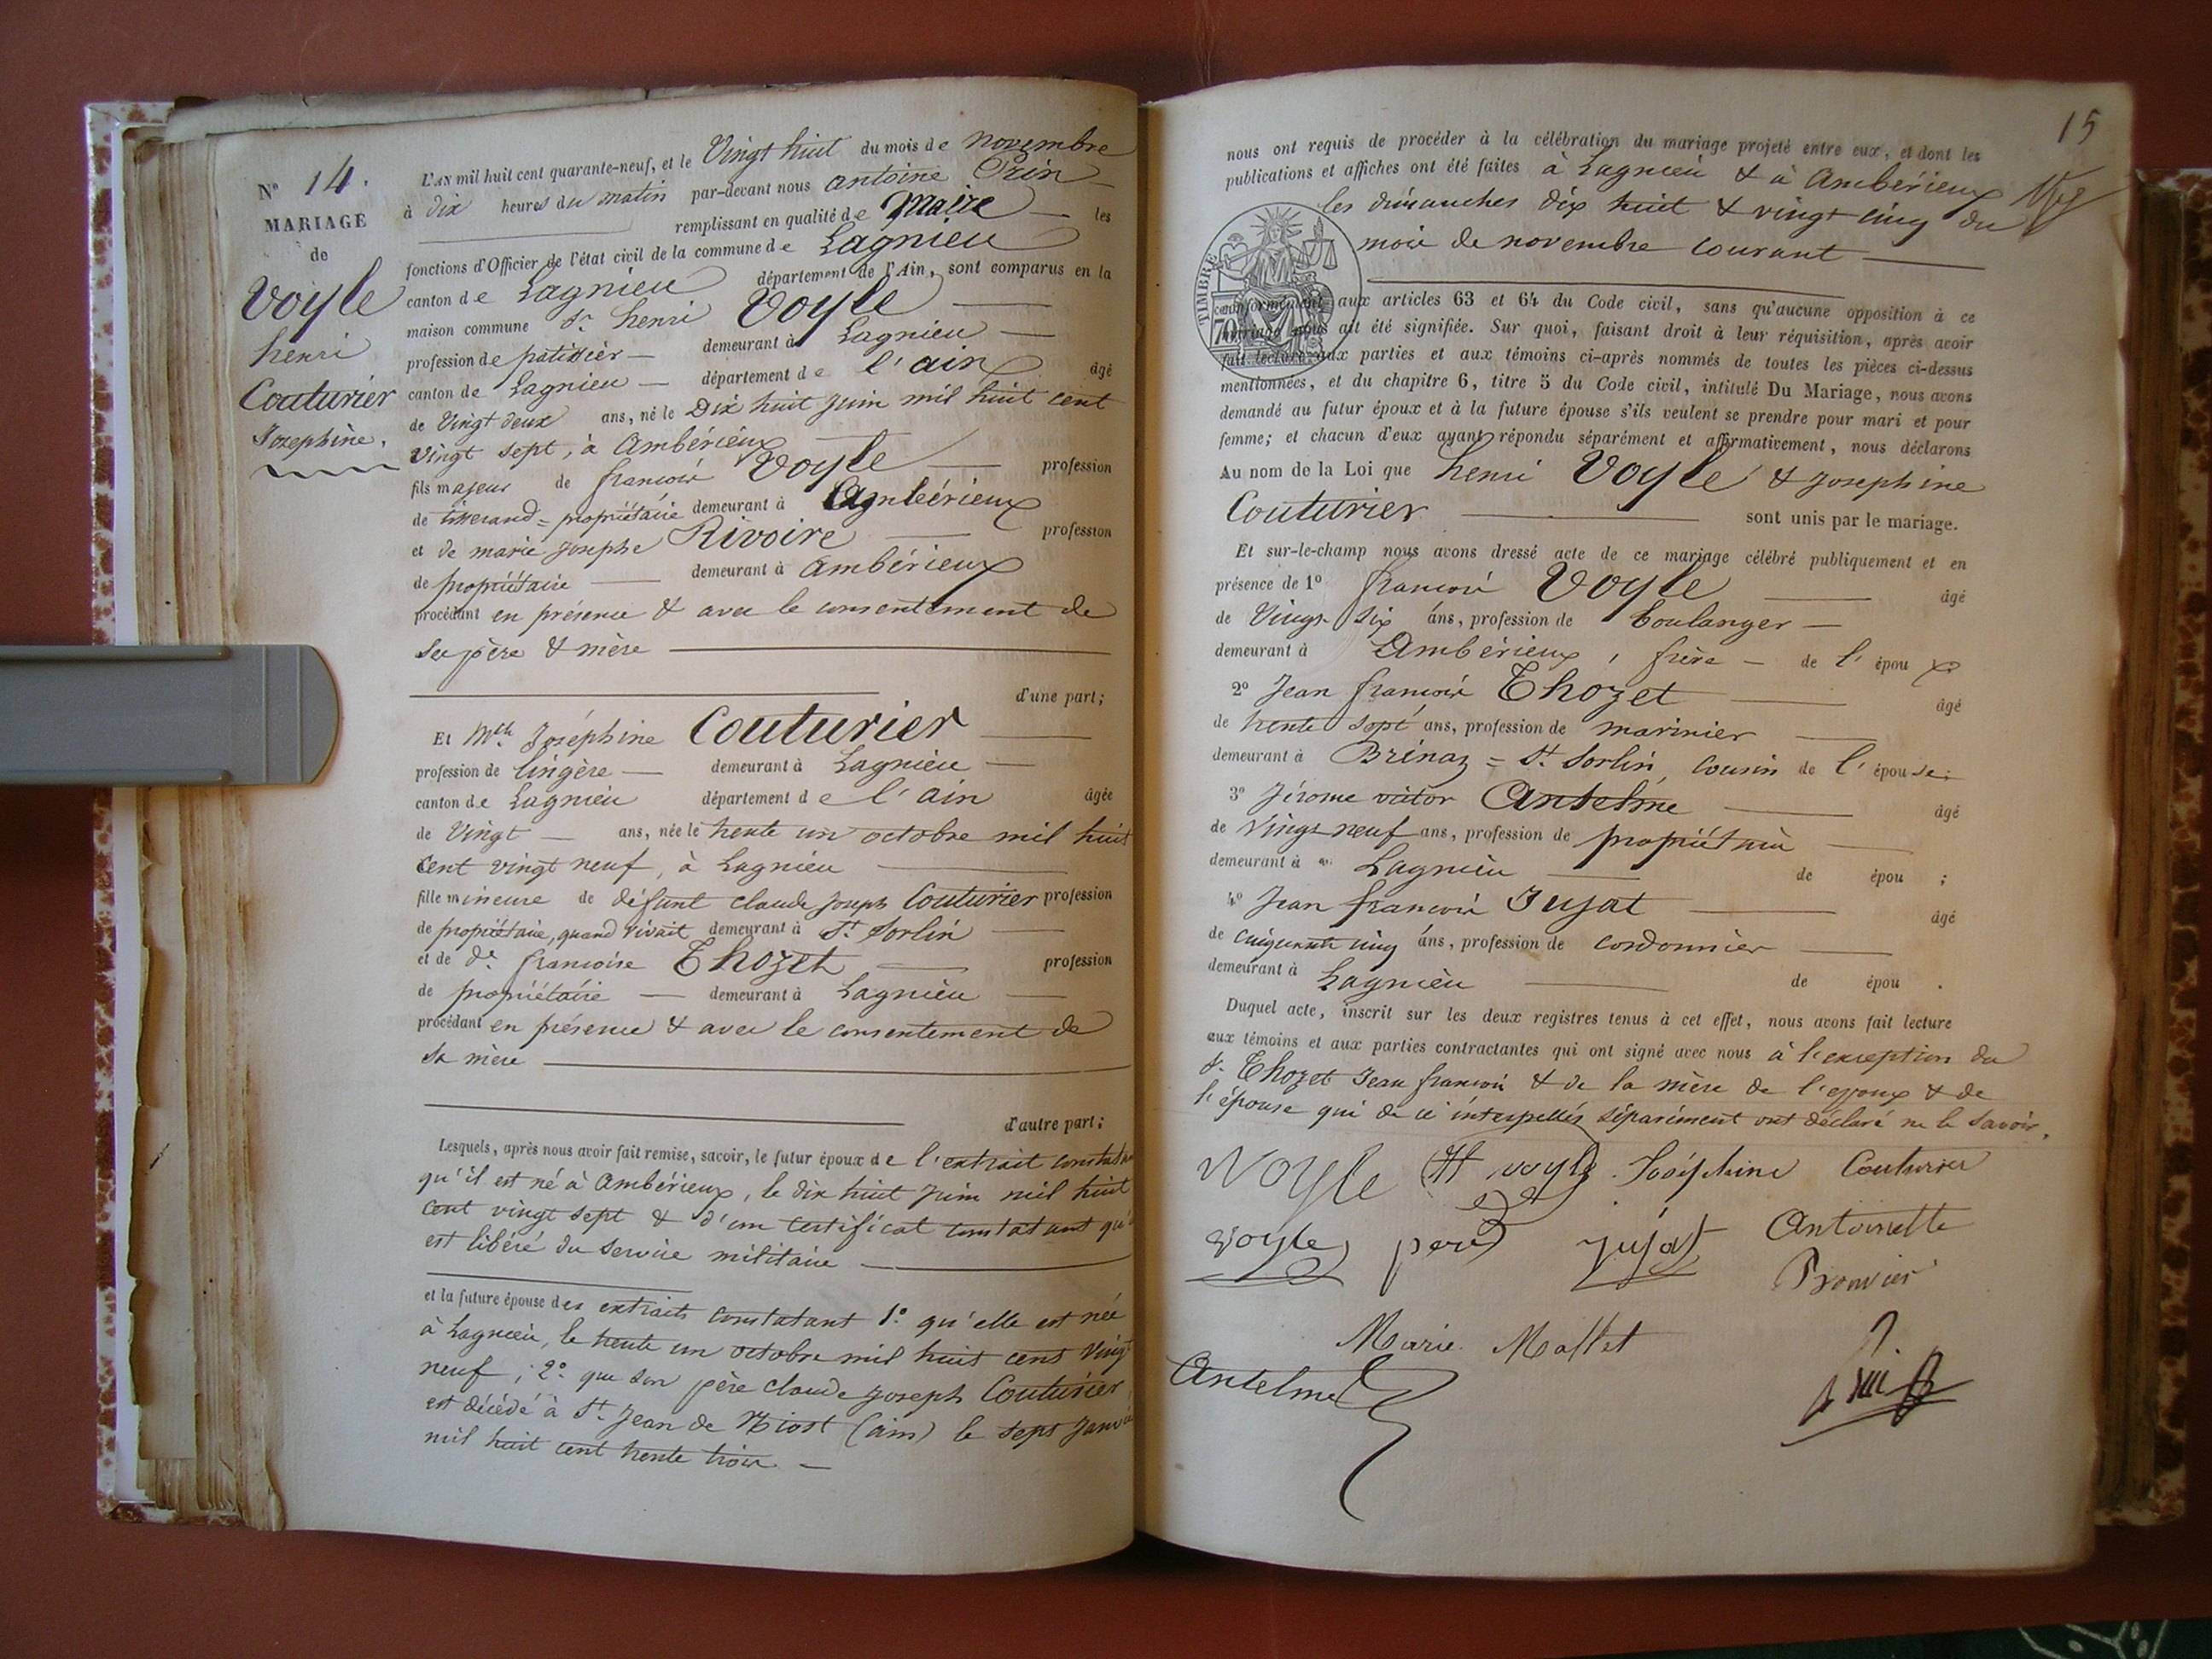 N° 14.
MARIAGE
de
Voyle
henri
Couturier
Josephine.
L'AN mil huit cent quarante-neuf, et le Vingt huit du mois de novembre
à dix heures du matin par-devant nous antoine Prin
remplissant en qualité de Maire les
fonctions d'Officier de l'état civil de la commune de Lagnieu
canton de Lagnieu département de l'Ain, sont comparus en la
maison commune Sr. henri Voyle
profession de patissier demeurant à Lagnieu
canton de Lagnieu département de l'ain âgé
de Vingt deux ans, né le Dix huit juin mil huit cent
Vingt sept, à Ambérieux
fils majeur de françois Voyle profession
de tisserand = propriétaire demeurant à Ambérieux
et de marie josephe Rivoire profession
de propriétaire demeurant à ambérieux
procédant en présence & avec le consentement de
ses père & mère
d'une part;
Et Melle. Joséphine Couturier
profession de lingère demeurant à Lagnieu
canton de Lagnieu département de l'ain âgée
de Vingt ans, née le trente un octobre mil huit
cent vingt neuf, à Lagnieu
fille mineure de défunt claude joseph Couturier profession
de propriétaire, quand vivait demeurant à St. Sorlin
et de de. francoise Thozet profession
de propriétaire demeurant à Lagnieu
procédant en présence & avec le consentement de
sa mère
d'autre part;
Lesquels, après nous avoir fait remise, savoir, le futur époux de l'extrait constatant
qu'il est né à Ambérieux, le dix huit juin mil huit
cent vingt sept & d'un certificat constatant qu'il
est libéré du service militaire
et la future épouse des extraits constatant 1° qu'elle est née
à Lagnieu, le trente un octobre mil huit cent Vingt
neuf; 2° que son père claude joseph Couturier
est décédé à St. Jean de Niost (ain) le sept Janvier
mil huit cent trente trois.
15
nous ont requis de procéder à la célébration du mariage projeté entre eux, et dont les
publications et affiches ont été faites à Lagnieu & à Ambérieux
les dimanches dix huit & vingt cinq du
mois de novembre courant
TIMBRE
70
conformément aux articles 63 et 64 du Code civil, sans qu'aucune opposition à ce
mariage nous ait été signifiée. Sur quoi, faisant droit à leur réquisition, après avoir
fait lecture aux parties et aux témoins ci-après nommés de toutes les pièces ci-dessus
mentionnées, et du chapitre 6, titre 5 du Code civil, intitulé Du Mariage, nous avons
demandé au futur époux et à la future épouse s'ils veulent se prendre pour mari et pour
femme; et chacun d'eux ayant répondu séparément et affirmativement, nous déclarons
Au nom de la Loi que henri Voyle & josephine
Couturier sont unis par le mariage.
Et sur-le-champ nous avons dressé acte de ce mariage célébré publiquement et en
présence de 1° francois Voyle âgé
de Vingt six ans, profession de boulanger
demeurant à Ambérieux, frère de l'époux
2° Jean francois Thozet âgé
de trente sept ans, profession de marinier
demeurant à Brénaz = St. Sorlin, cousin de l'épouse;
3° Jérome victor Antelme âgé
de Vingt neuf ans, profession de propriétaire
demeurant à Lagnieu de épou ;
4° Jean francois Jujat âgé
de cinquante cinq ans, profession de cordonnier
demeurant à Lagnieu de épou .
Duquel acte, inscrit sur les deux registres tenus à cet effet, nous avons fait lecture
aux témoins et aux parties contractantes qui ont signé avec nous à l'exception du
Sr. Thozet Jean francois & de la mère de l'époux & de
l'épouse qui de ce interpellés séparément ont déclaré ne le savoir.
Voyle H voyle Joséphine Couturier
voyle père jujat Antoinette
Marie Mallet
Antelme